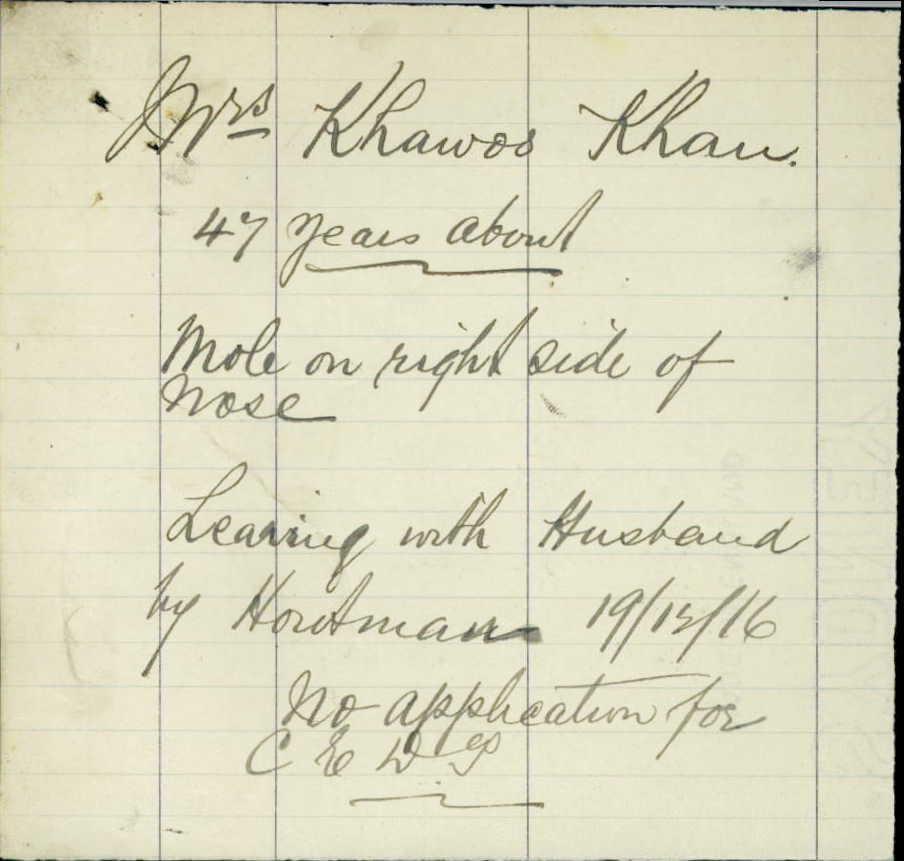 Mrs Khawos Khan.
47 years about
Mole on right side of
Nose
Leaving with Husband
by Houtman 19/12/16
No application for
C E D T